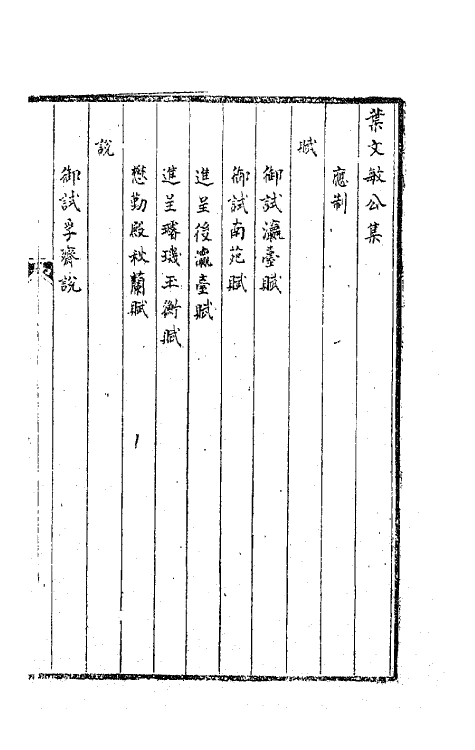 葉文敏公集
應制
賦
御試瀛臺賦
御試南苑賦
進呈後瀛臺賦
進呈璿璣玉衡賦
懋勤殿秋蘭賦
說
御試孚齋說